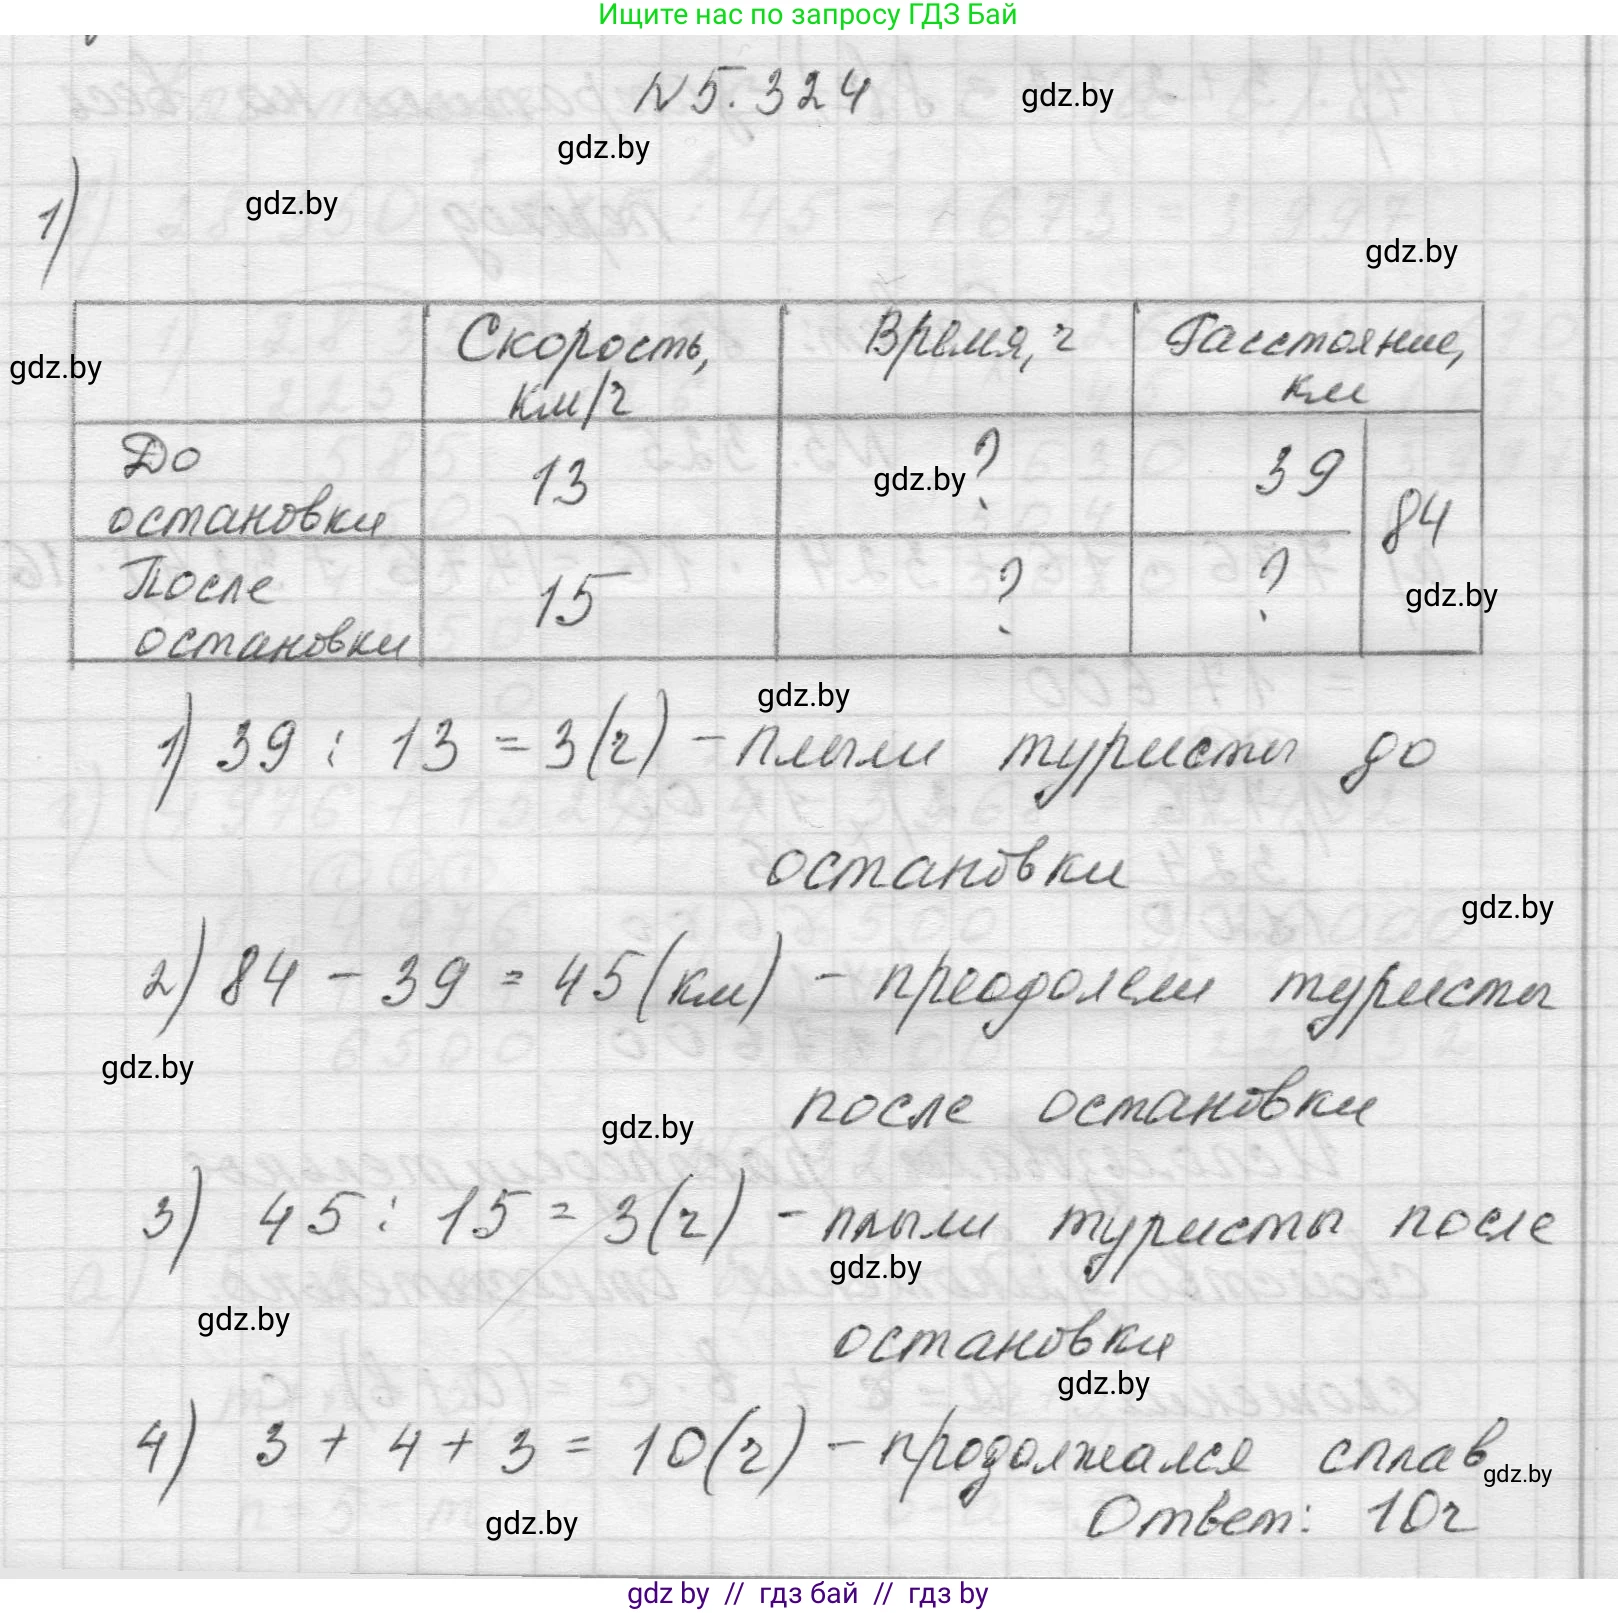 Ищите нас по запросу ГДЗ Бай
N 5.324
gdz.by
gdz.by
gdz.by
1)
gdz.by
Скорость, км/ч
Время, ч
Расстояние, км
gdz.by
До остановки
13
?
39
84
gdz.by
После остановки
15
?
?
gdz.by
gdz.by
1) 39 : 13 = 3(ч) - плыли туристы до
остановки
gdz.by
2) 84 - 39 = 45(км) - преодолели туристы
gdz.by
после остановки
gdz.by
3) 45 : 15 = 3(ч) - плыли туристы после
gdz.by
gdz.by
остановки
gdz.by
4) 3 + 4 + 3 = 10(ч) - продолжался сплав
gdz.by
Ответ: 10ч
gdz.by
gdz by // гдз бай // гдз by